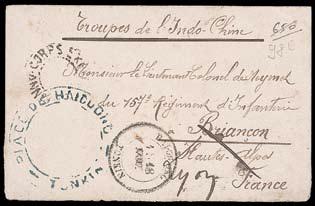 Troupes de l'Indo-Chine
650
980
Monsieur le Lieutenant Colonel de
du 157e Régiment d'Infanterie
Briançon
Hautes-Alpes
Lyon
France
CORPS
PLACE DE HAIDUONG
TONKIN